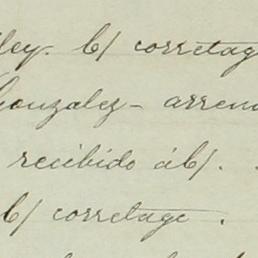 ley. b/ corretag
Gonzalez - arrend
recibido áb/.
b/ corretage.